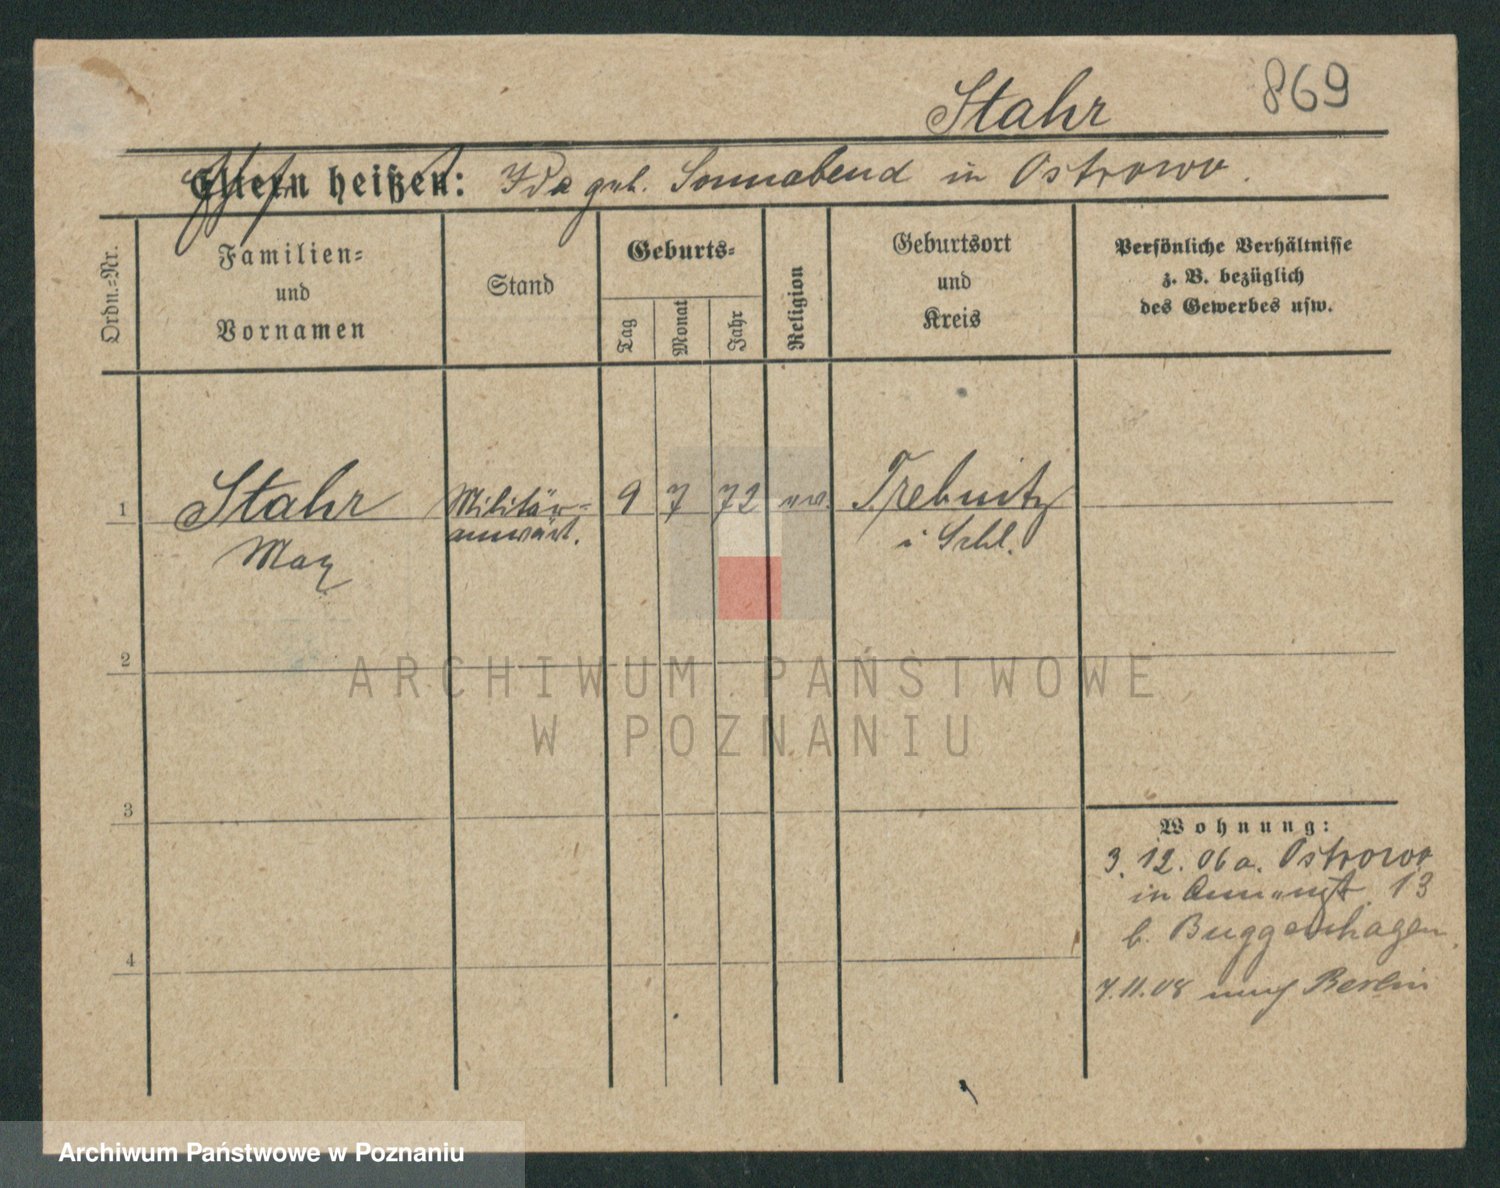 Stahr 869
Eltern heißen: Ida geb. Sonnabend in Ostrowo.
Ordn.-Nr.
Familien-
und
Vornamen
Stand
Geburts-
Tag
Monat
Jahr
Religion
Geburtsort
und
Kreis
Persönliche Verhältnisse
z. B. bezüglich
des Gewerbes usw.
1 Stahr Militär- 9 7 72 ev. Trebnitz
Max anwärt. i Schl.
2
3
4
Wohnung:
3. 12. 06 a. Ostrowo
in 13
b. Buggenhagen
7.11.08 nach Berlin
ARCHIWUM PAŃSTWOWE
W POZNANIU
Archiwum Państwowe w Poznaniu